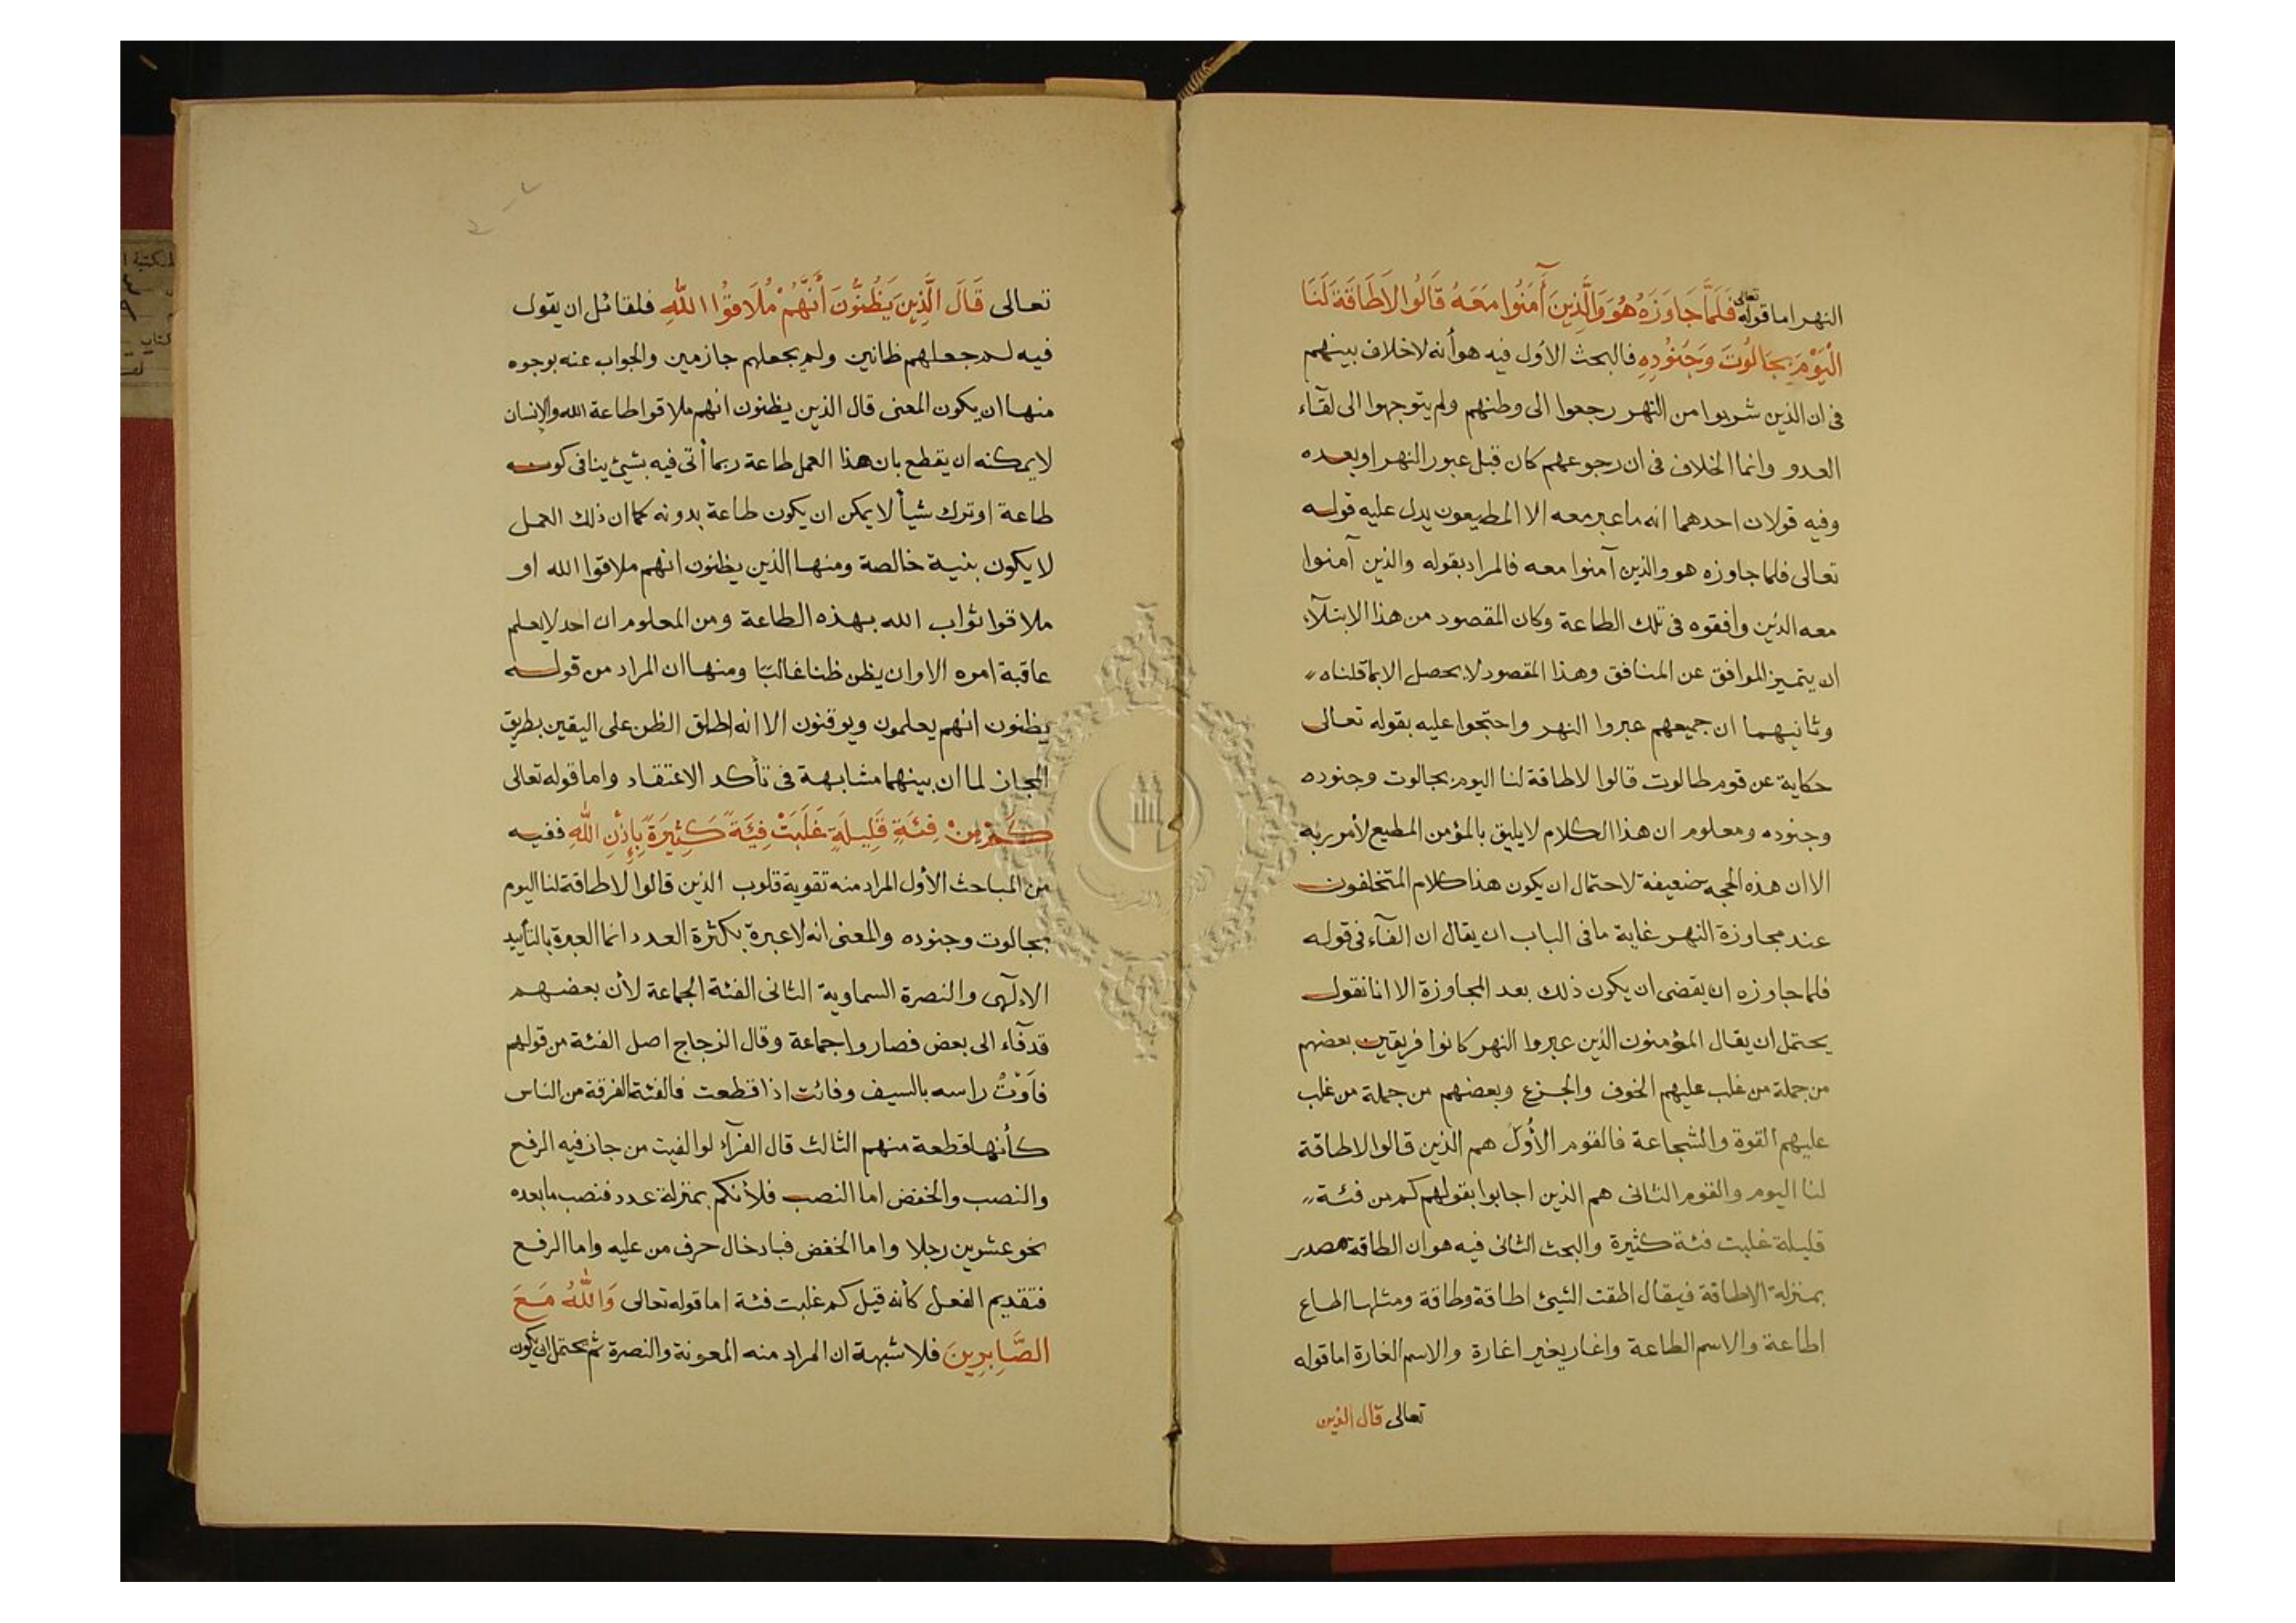 النهر اما قوله تعالى فَلَمَّا جَاوَزَهُ هُوَ وَالَّذِينَ أٓمَنُوا مَعَهُ قَالُوا لَاطَاقَةَ لَنَا
الْيَوْمَ بِجَالُوتَ وَجُنُوْدِهِ فالبحث الاول فيه هو أنه لاخلاف بينهم
فى ان الذين شربوا من النهر رجعوا الى وطنهم ولم يتوجهوا الى لقآء
العدو وانما الخلاف فى ان رجوعهم كان قبل عبور النهر او بعده
وفيه قولان احدهما انه ما عبر معه الا المطيعون يدل عليه قوله
تعالى فلما جاوزه هو والذين آمنوا معه فالمراد بقوله والذين آمنوا
معه الذين وافقوه فى تلك الطاعة وكان المقصود من هذا الابتلآء
ان يتميز الموافق عن المنافق وهذا المقصود لا يحصل الا بما قلناه
وثانيهما ان جميعهم عبروا النهر واحتجوا عليه بقوله تعالى
حكاية عن قوم طالوت قالوا لاطاقة لنا اليوم بجالوت وجنوده
وجنوده ومعلوم ان هذا الكلام لايليق بالمؤمن المطيع لأمر ربه
الا ان هذه الحجه ضعيفة لاحتمال ان يكون هذا كلام المتخلفون
عند مجاوزة النهر غاية ما فى الباب ان يقال ان الفآء فى قوله
فلما جاوزه ان يقضى ان يكون ذلك بعد المجاوزة الا انا نقول
يحتمل ان يقال المؤمنون الذين عبروا النهر كانوا فريقين بعضهم
من جملة من غلب عليهم الخوف والجزع وبعضهم من جملة من غلب
عليهم القوة والشجاعة فالقوم الأول هم الذين قالوا لاطاقة
لنا اليوم والقوم الثانى هم الذين اجابوا بقولهم كم من فئة
قليلة غلبت فئة كثيرة والبحث الثانى فيه هو ان الطاقة مصدر
بمنزلة الاطاقة فيقال اطقت الشيئ اطاقة وطاقة ومثلها اطاع
اطاعة والاسم الطاعة واغار يغير اغارة والاسم الغارة اما قوله
تعالى قال الذين
تعالى قَالَ الَّذِينَ يَظُنُّونَ أَنَّهُمْ مُلَاقُوْا اللهِ فلقائل ان يقول
فيه لم جعلهم ظانين ولم يجعلهم جازمين والجواب عنه بوجوه
منها ان يكون المعنى قال الذين يظنون انهم ملاقوا طاعة الله والإنسان
لايمكنه ان يقطع بان هذا العمل طاعة ربما أتى فيه بشيئ ينافى كونه
طاعة او ترك شيأ لا يمكن ان يكون طاعة بدونه كما ان ذلك العمل
لا يكون بنية خالصة ومنها الذين يظنون انهم ملاقوا الله او
ملاقوا ثواب الله بهذه الطاعة ومن المعلوم ان احد لايعلم
عاقبة امره الا وان يظن ظنا غالبًا ومنها ان المراد من قوله
يظنون انهم يعلمون ويوقنون الا انه اطلق الظن على اليقين بطريق
المجاز لما ان بينهما مشابهة فى تأكد الاعتقاد واما قوله تعالى
كَمْ مِنْ فِئَةٍ قَلِيلَةٍ غَلَبَتْ فِئَةً كَثِيرَةً بِإِذْنِ اللهِ ففيه
من المباحث الأول المراد منه تقوية قلوب الذين قالوا لاطاقة لنا اليوم
بجالوت وجنوده والمعنى انه لاعبرة بكثرة العدد انما العبرة بالتأييد
الإلٓهى والنصرة السماوية الثانى الفئة الجماعة لأن بعضهم
قد فآء الى بعض فصاروا جماعة وقال الزجاج اصل الفئة من قولهم
فأوتُ راسه بالسيف وفائت اذا قطعت فالفئة الفرقة من الناس
كأنها قطعة منهم الثالث قال الفرآء لو الفيت من جاز فيه الرفع
والنصب والخفض اما النصب فلأنكم بمنزلة عدد فنصب ما بعده
نحو عشرين رجلا واما الخفض فبادخال حرف من عليه واما الرفع
فتقديم الفعل كأنه قيل كم غلبت فئة اما قوله تعالى وَاللهُ مَعَ
الصَّابِرِينَ فلا شبهة ان المراد منه المعونة والنصرة ثم يحتمل ان يكون